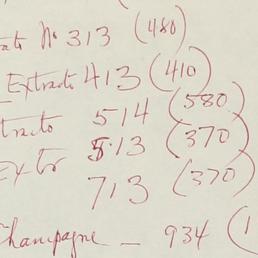 ato Nº 313 (480)
Extracto 413 (410)
tracto 514 (580)
Extro 513 (370)
713 (370)
Champagne — 934 (1